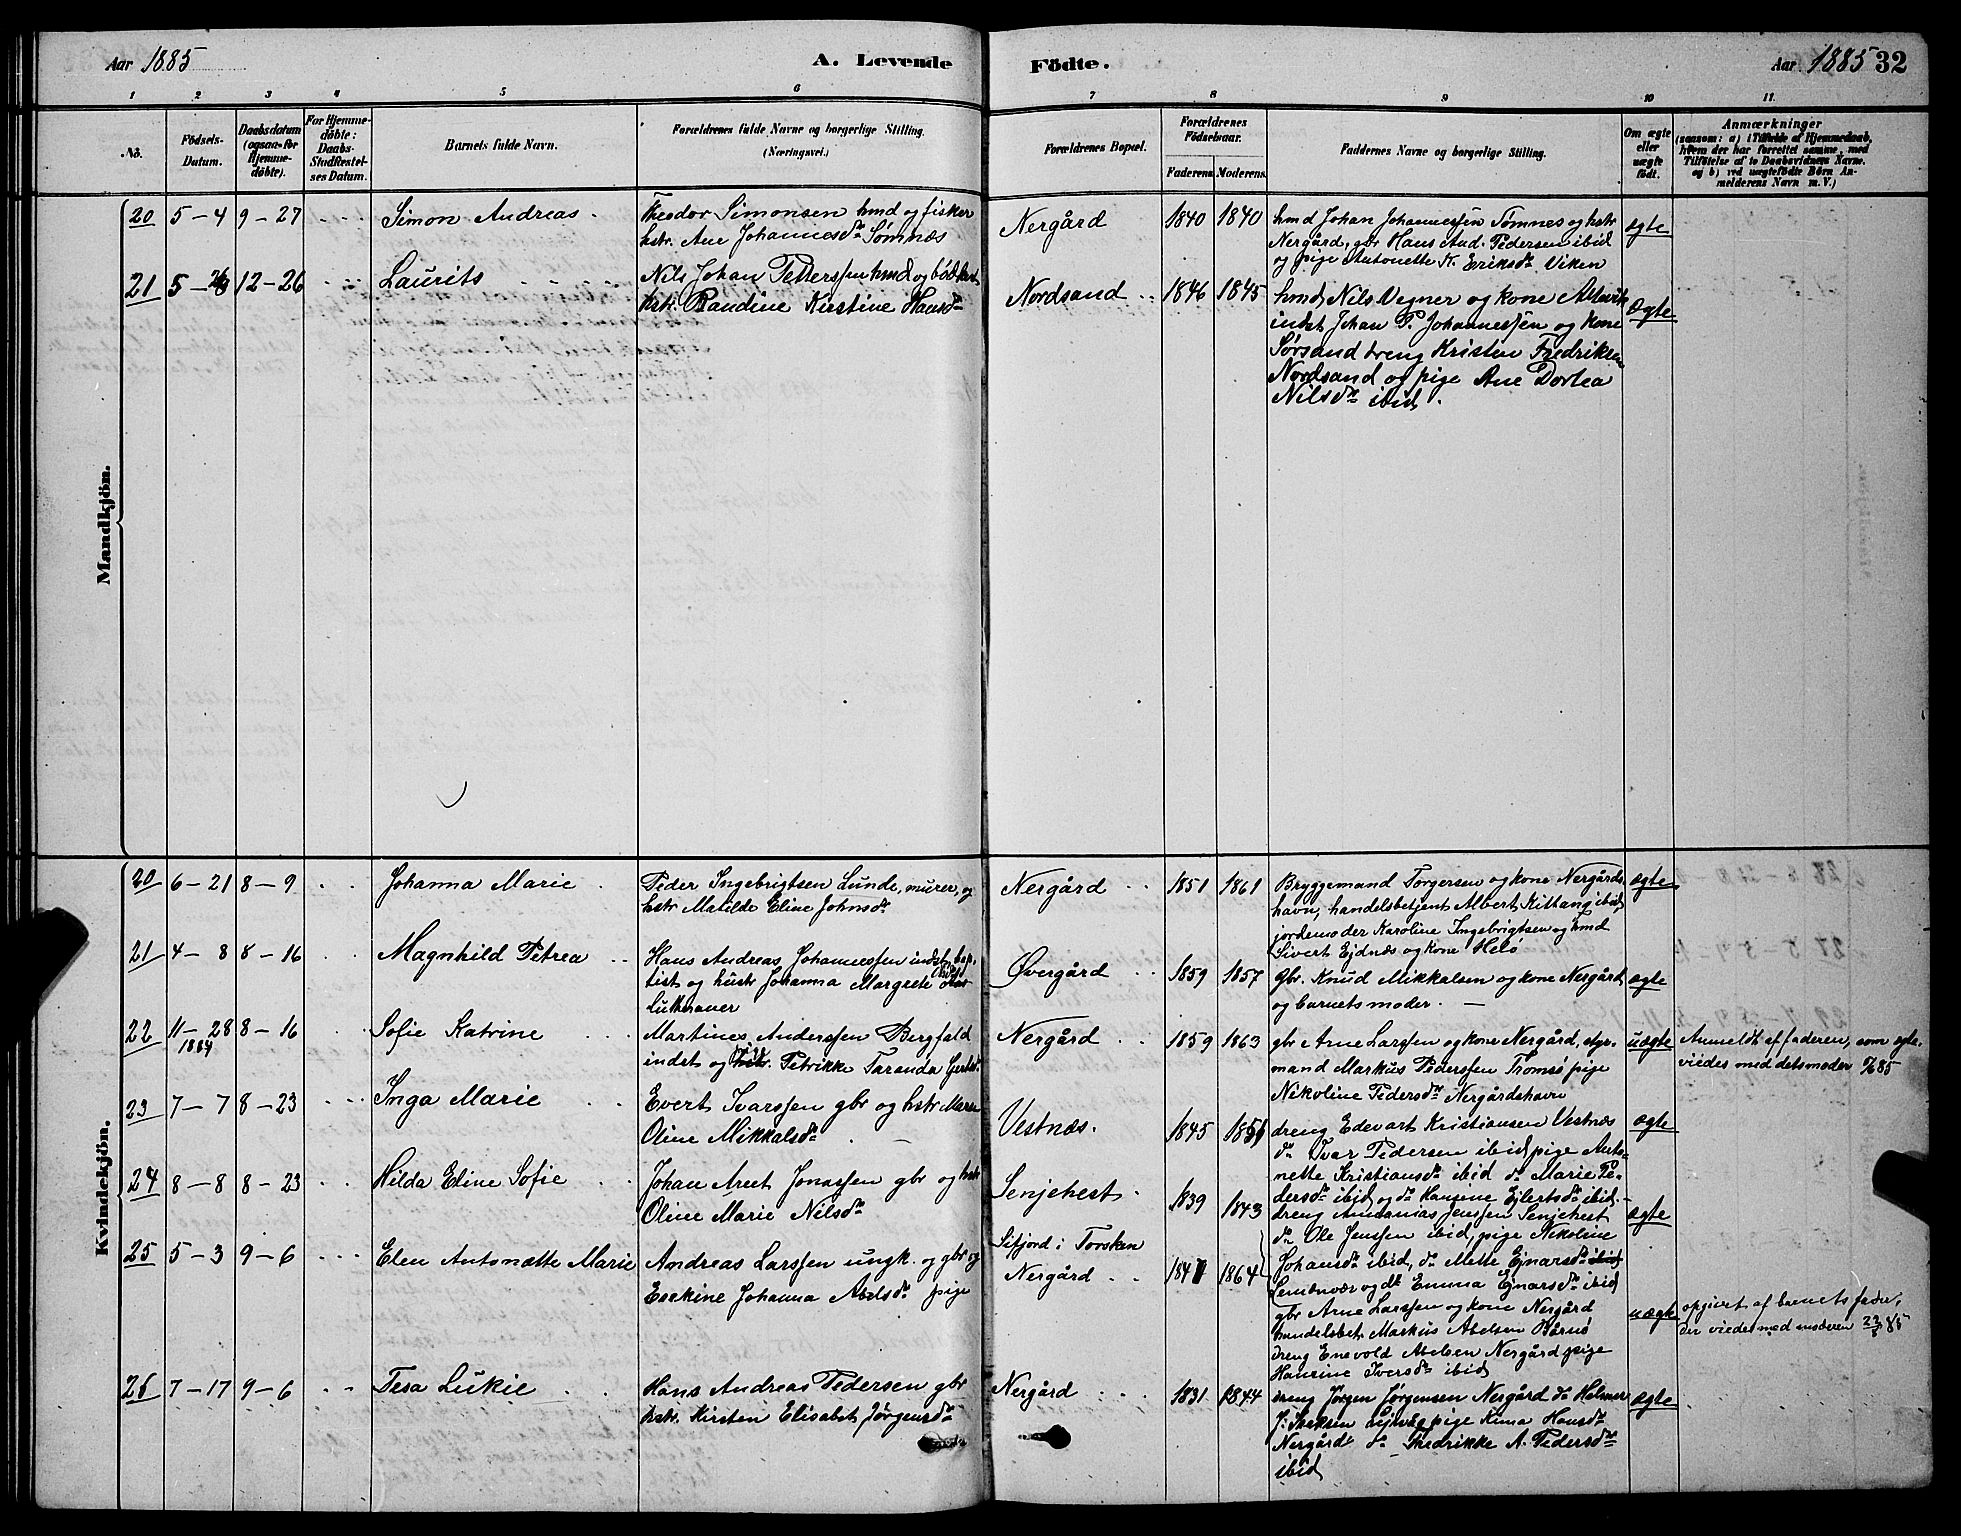 Aar 1885
A. Levende Födte.
Aar 1885 32
1 2 3 4 5 6 7 8 9 10 11.
No.
Födsels-Datum.
Daabsdatum (ogsaa for Hjemme-döbte).
For Hjemme-döbte: Daabs-Stadfæstelses Datum.
Barnets fulde Navn.
Forældrenes fulde Navne og borgerlige Stilling.
(Næringsvei.)
Forældrenes Bopæl.
Forældrenes Födselsaar.
Faderens. Moderens.
Faddernes Navne og borgerlige Stilling.
Om ægte eller uægte födt.
Anmærkninger
(saasom: a) i Tilfælde af Hjemmedaab, hvem der har forrettet samme, med Tilföielse af to Daabsvidners Navne. og b) ved uægtefödte Börn Anmelderens Navn m. V.)
Mandkjön.
20 5-4 9-27 Simon Andreas
Theodor Simonsen hmd og fisker
hstr. Ane Johannesdr Sømnæs
Nergård 1840 1840
hmd Johan Johannessen Tømnes og hstr
Nergård, gbr Hans And. Pedersen ibid
og pige Antonette K. Eriksdr Viken
ægte
21 5-26 12-26 Laurits
Nils Johan Pederssen hmd og
hstr. Randine Kirstine Hansdr
Nordsand 1846 1845
hmd Nils Vegner og kone
indst Johan P. Johannessen og kone
Sørsand dreng Kristen Fredriksen
Nordsand og pige Ane Dortea
Nilsdr ibid.
Ægte
Kvindekjön.
20 6-21 8-9 Johanna Marie
Peder Ingebrigtsen Lunde, murer, og
hstr Matilde Eline Johnsdr
Nergård 1851 1861
Bryggemand Torgersen og kone Nergårds
havn, handelsbetjent Albert Kittang ibid
jordemoder Karoline Ingebrigtsen og hmd
Sivert Ejdnæs og kone Helø
ægte
21 4-8 8-16 Magnhild Petrea
Hans Andreas Johannessen indst, bap-
tist og hustr Johanna Margrete
Lutheraner
Øvergård 1859 1857
Gbr. Knud Mikkalsen og kone Nergård
og barnets moder.
ægte
22 11-28 1884 8-16 Sofie Katrine
Martines Anderssen Bergfald
indst og Petrikke Taranda
Nergård 1859 1863
gbr Arne Larssen og kone Nergård, styr-
mand Markus Pederssen Tromsø pige
Nikoline Pedersdr Nergårdshavn
uægte
Anmeldt af faderen, som ægte-
viedes med dets moder
23 7-7 8-23 Inga Marie
Evert Ivarssen gbr og hstr Maren
Oline Mikkalsdr
Vestnæs. 1845 1851
dreng Edevart Kristiansen Vestnæs
do Ivar Pedersen ibid, pige Anto-
nette Kristiansdr ibid do Marie Pe-
dersdr ibid og do Hansine Ejlertsdr ibid.
ægte
24 8-8 8-23 Hilda Eline Sofie
Johan Areet Jonassen gbr og hstr
Oline Marie Nilsdr
Senjehest 1839 1843
dreng Annanias Jenssen Senjehest
do Ole Jenssen ibid, pige Nikoline
Johansdr ibid, do Mette Ejnarsdr ibid
Lembvær og do Emma Ejnarsdr ibid
ægte
25 5-3 9-6 Elen Antonætte Marie
Andreas Larssen ungk. og gbr og
Eserkine Johanna Abelsdr pige
Sifjord i Torsken
Nergård 1847 1864
gbr Arne Larssen og kone Nergård
handelsbet. Markus Abelsen
dreng Enevold Abelsen Nergård pige
Hansine Iversdr ibid
uægte
opgivet af barnets fader,
der viedes med moderen 23/8 85
26 7-17 9-6 Tesa Lukie
Hans Andreas Pedersen gbr
hstr. Kirsten Elisabet Jørgensdr
Nergård 1831 1844
dreng Jørgen Jørgensen Nergård do Helmer
J. Isaksen pige Kima Hansdr
Nergård do Fredrikke A. Pedersdr
ibid
ægte